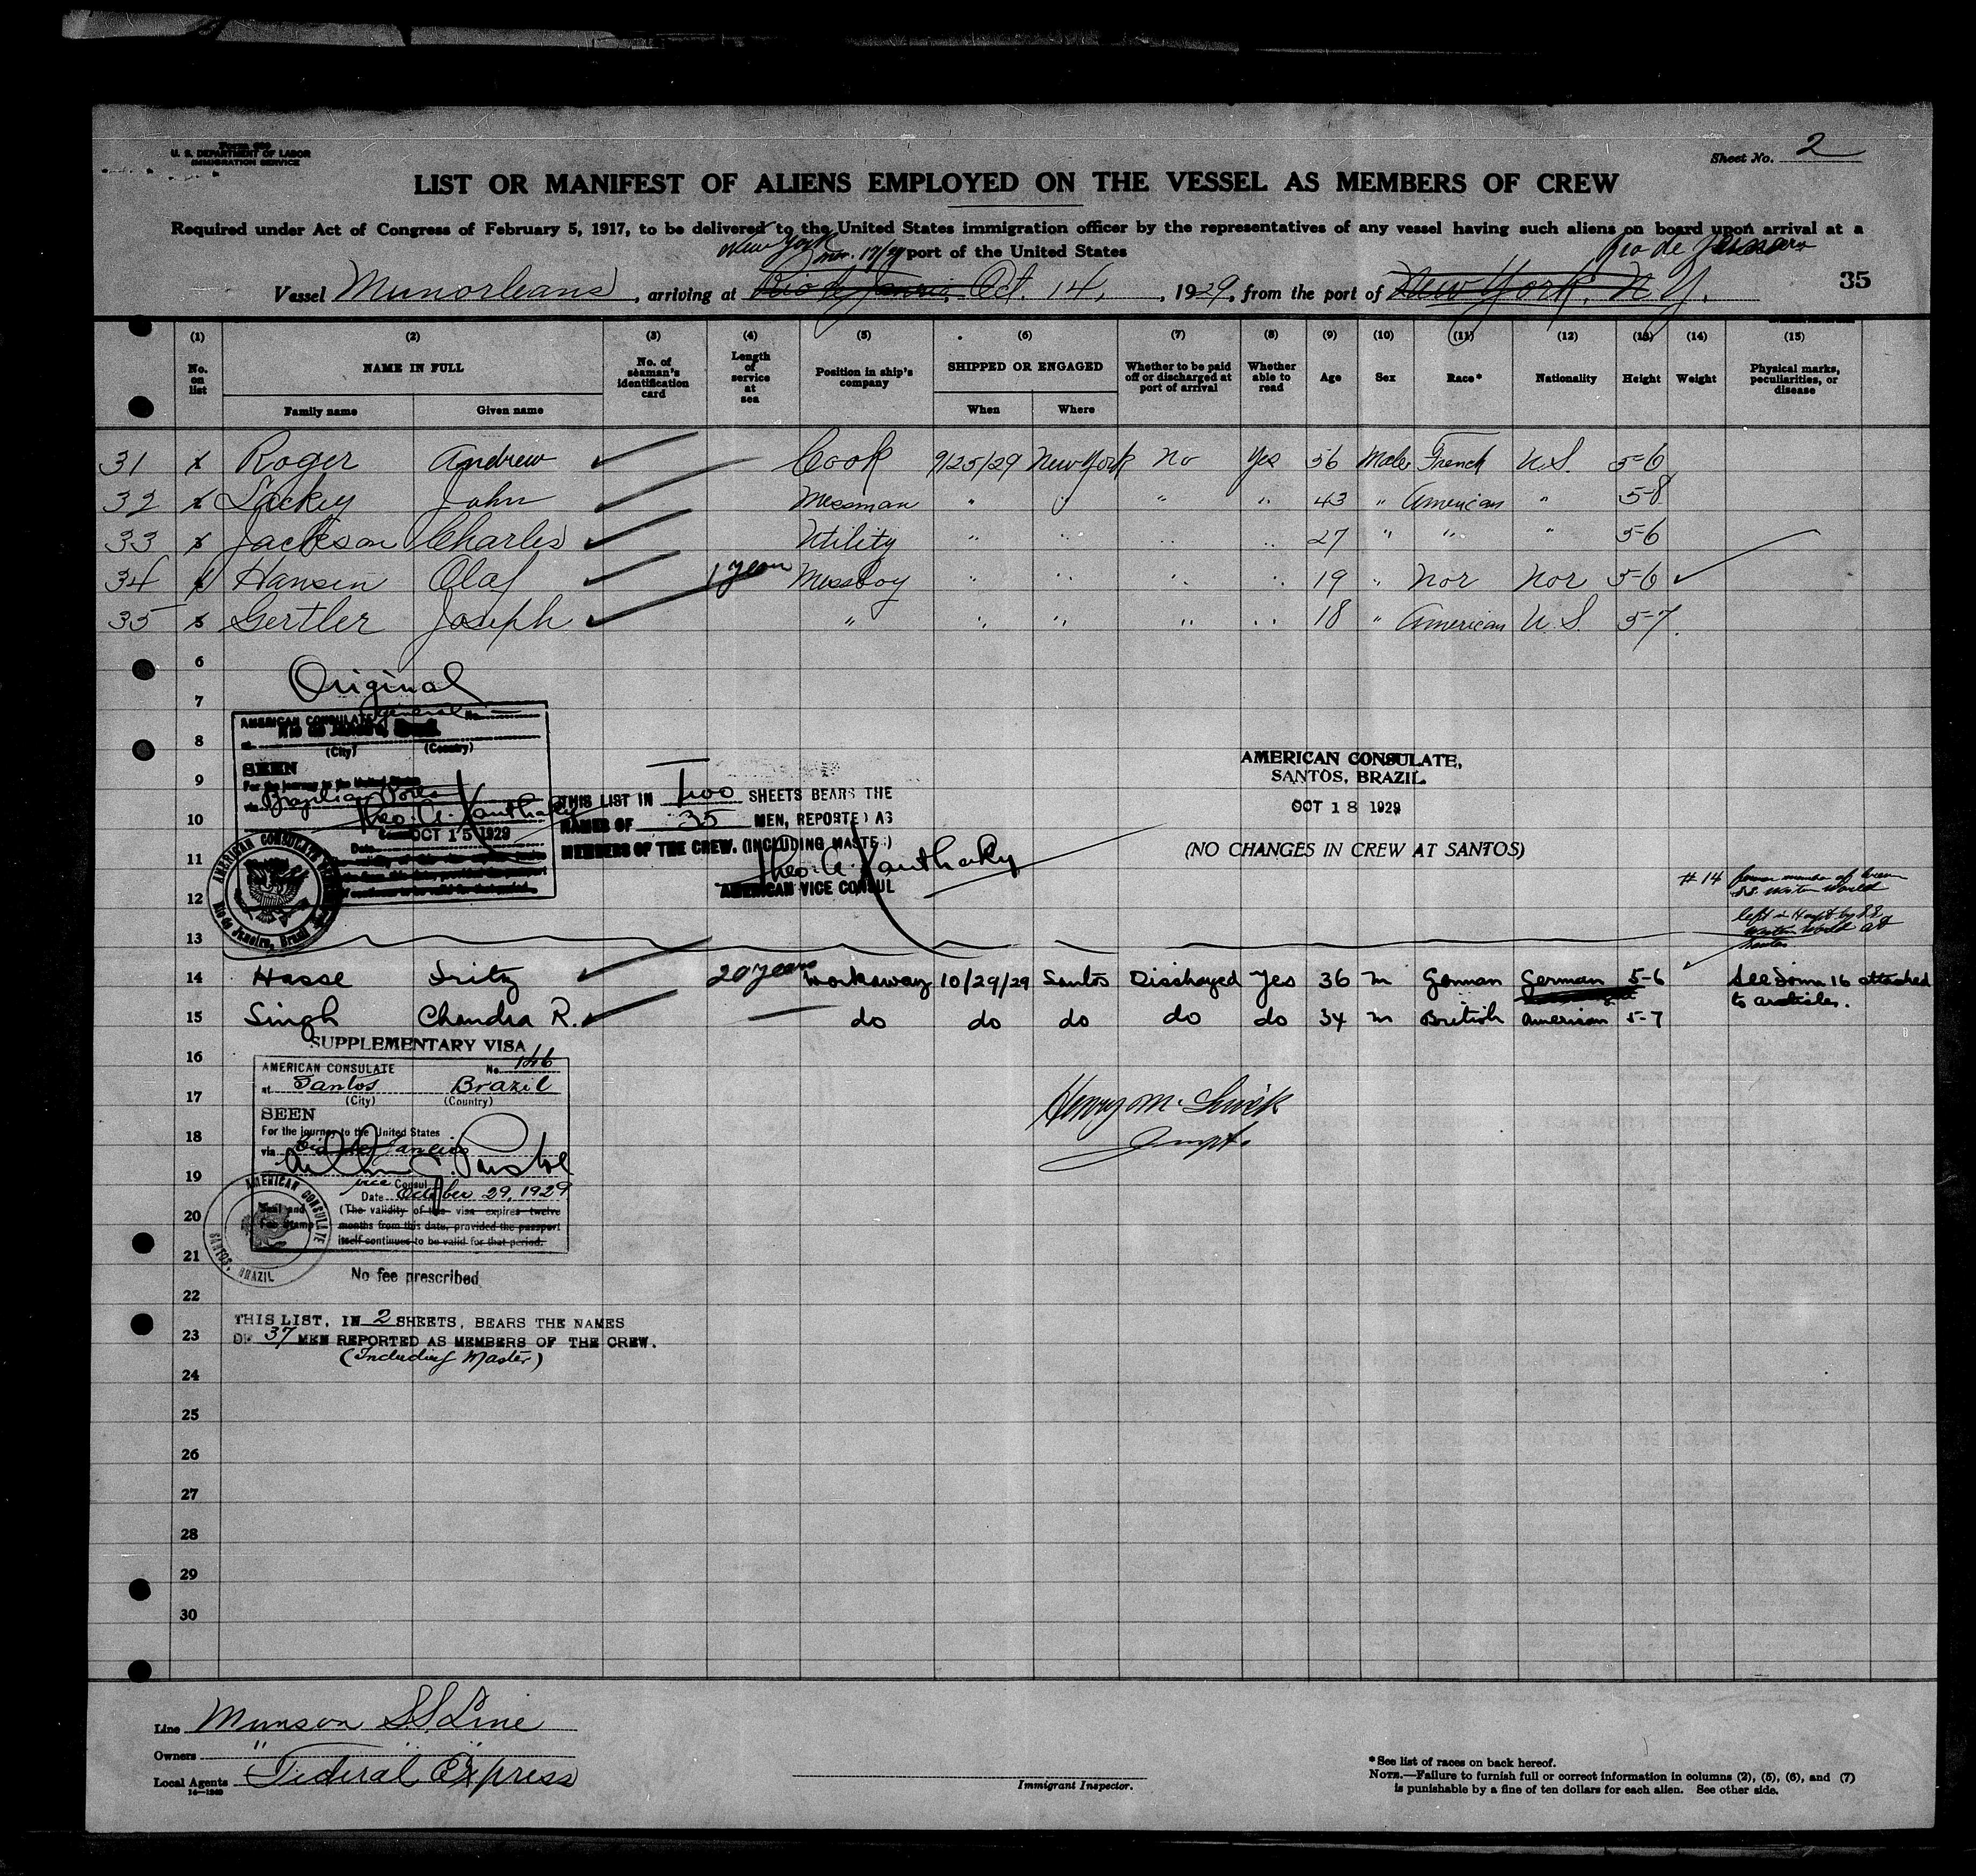 Form 680
U. S. DEPARTMENT OF LABOR
IMMIGRATION SERVICE
Sheet No. 2
LIST OR MANIFEST OF ALIENS EMPLOYED ON THE VESSEL AS MEMBERS OF CREW
Required under Act of Congress of February 5, 1917, to be delivered to the United States immigration officer by the representatives of any vessel having such aliens on board upon arrival at a
port of the United States
New York Nov. 17/29
Rio de Janeiro
Vessel Munorleans, arriving at Rio de Janeiro, Oct. 14, 1929, from the port of New York, N.Y.
35
(1) (2) (3) (4) (5) (6) (7) (8) (9) (10) (11) (12) (13) (14) (15)
No. on list NAME IN FULL No. of seaman's identification card Length of service at sea Position in ship's company SHIPPED OR ENGAGED Whether to be paid off or discharged at port of arrival Whether able to read Age Sex Race* Nationality Height Weight Physical marks, peculiarities, or disease
Family name Given name When Where
31 x Roger Andrew Cook 9/25/29 New York No Yes 56 Male French U.S. 5-6
32 x Lackey John Messman " " " " 43 " American " 5-8
33 x Jackson Charles Utility " " " " 27 " " " 5-6
34 x Hansen Olaf 1 year Messboy " " " " 19 " Nor Nor 5-6
35 x Gertler Joseph " " " " " 18 " American U.S. 5-7
6
Original
7
AMERICAN CONSULATE General No.
8
at Rio de Janeiro, Brazil
(City) (Country)
SEEN
9
For the journey to the United States
via Brazilian Ports
Theo. A. Xanthaky
10
OCT 15 1929
Date
AMERICAN CONSULATE
Rio de Janeiro, Brazil
THIS LIST IN Two SHEETS BEARS THE
NAMES OF 35 MEN, REPORTED AS
MEMBERS OF THE CREW. (INCLUDING MASTER)
Theo. A. Xanthaky
AMERICAN VICE CONSUL
AMERICAN CONSULATE,
SANTOS, BRAZIL.
OCT 18 1929
(NO CHANGES IN CREW AT SANTOS)
11
12
13
#14 former member of crew
S.S. Western World
left in Hospt by SS
Western World at
Santos
14 Hasse Fritz 20 years Workaway 10/29/29 Santos Discharged Yes 36 m German German 5-6 See Form 16 attached
to articles.
15 Singh Chandra R. do do do do do 34 m British American 5-7
SUPPLEMENTARY VISA
16
AMERICAN CONSULATE No. 146
at Santos Brazil
17
(City) (Country)
SEEN
For the journey to the United States
18
via Rio de Janeiro
19
vice Consul
Date October 29, 1929
20
Seal and Fee Stamp
(The validity of this visa expires twelve
months from this date, provided the passport
itself continues to be valid for that period.
AMERICAN CONSULATE
SANTOS, BRAZIL
21
No fee prescribed
Henry M.
22
THIS LIST, IN 2 SHEETS, BEARS THE NAMES
23
OF 37 MEN REPORTED AS MEMBERS OF THE CREW.
(Including Master)
24
25
26
27
28
29
30
Line Munson S.S. Line
Owners " " "
Local Agents Federal Express
Immigrant Inspector.
*See list of races on back hereof.
NOTE.—Failure to furnish full or correct information in columns (2), (5), (6), and (7)
is punishable by a fine of ten dollars for each alien. See other side.